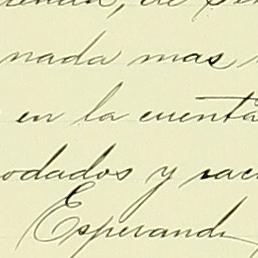 nada mas
en la cuenta
odados y sac
Esperand